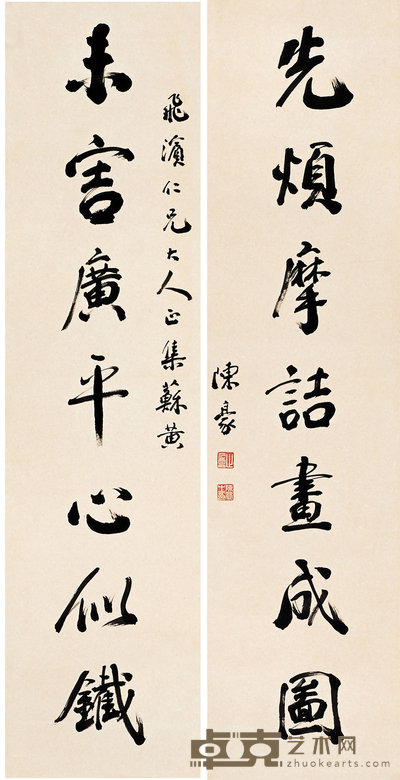 先煩摩詰畫成圖
未害廣平心似鐵
飛濱仁兄大人正集蘇黃
陳豪
卓克艺术网
zhuokearts.com